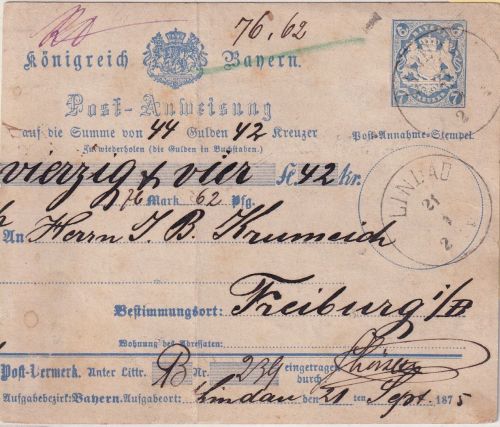 76,62
Königreich Bayern.
6 6
7 7
Post-Anweisung
auf die Summe von 44 Gulden 42 Kreuzer
Post-Annahme-Stempel.
Zu wiederholen (die Gulden in Buchstaben.)
vierzig & vier fl. 42 kr.
76 Mark 62 Pfg.
LINDAU
21
2
An Herrn J. B. Krumeich
Bestimmungsort: Freiburg i/B
Wohnung des Adressaten:
Post-Vermerk. Unter Littr. B Nr. 239 eingetragen durch
Aufgabebezirk: Bayern. Aufgabeort: Lindau den 21 ten Sept. 1875